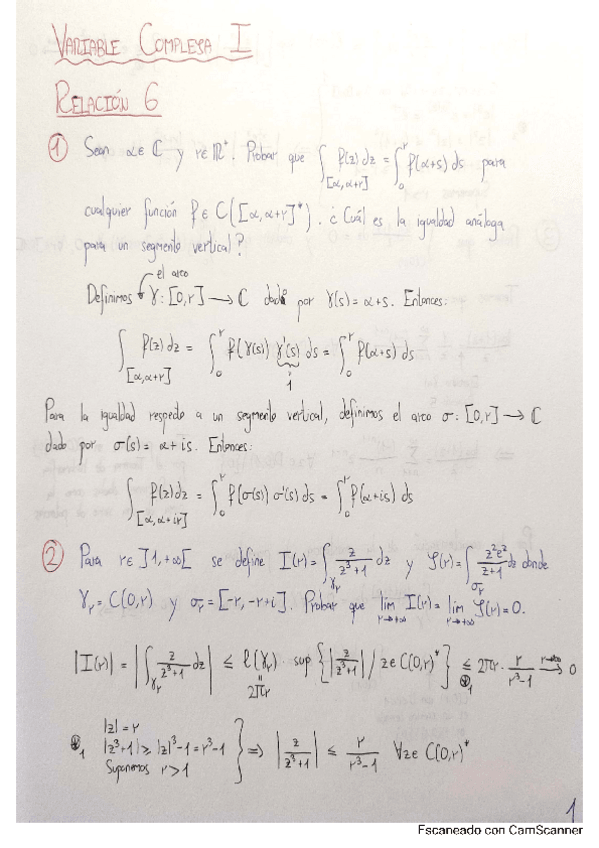 VARIABLE COMPLEJA I
RELACIÓN 6
① Sean α∈ℂ y r∈ℝ⁺. Probar que ∫_[α,α+r] f(z)dz = ∫_0^r f(α+s)ds para
cualquier función f∈C([α,α+r]*). ¿Cuál es la igualdad análoga
para un segmento vertical?
el arco
Definimos γ: [0,r] → ℂ dado por γ(s)=α+s. Entonces:
∫_[α,α+r] f(z)dz = ∫_0^r f(γ(s)) γ'(s) ds = ∫_0^r f(α+s)ds
1
Para la igualdad respecto a un segmento vertical, definimos el arco σ: [0,r] → ℂ
dado por σ(s)=α+is. Entonces:
∫_[α,α+ir] f(z)dz = ∫_0^r f(σ(s)) σ'(s)ds = ∫_0^r f(α+is) ds
② Para r∈]1,+∞[ se define I(r)=∫_γᵣ z/(z³+1) dz y J(r)=∫_σᵣ z²e^z/(z+1) dz donde
γᵣ = C(0,r) y σᵣ=[-r,-r+i]. Probar que lim_{r→+∞} I(r)= lim_{r→+∞} J(r)=0.
|I(r)| = |∫_γᵣ z/(z³+1) dz| ≤ l(γᵣ) · sup{|z/(z³+1)| / z∈C(0,r)*} ≤ 2πr · r/(r³-1) → 0
2πr
⊛₁ |z|=r
|z³+1| ≥ |z|³-1 = r³-1 } ⇒ |z/(z³+1)| ≤ r/(r³-1) ∀z∈C(0,r)*
Suponemos r>1
1
Escaneado con CamScanner